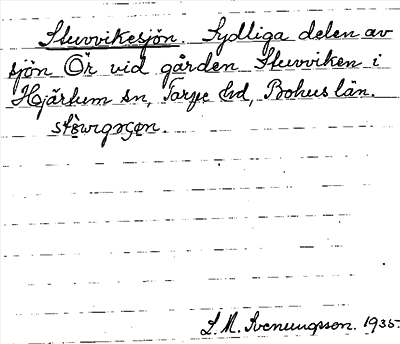 Stuvvikesjön. Sydliga delen av
sjön Ör vid gården Stuvviken i
Hjärtum sn, Inlands Torpe hd, Bohus län.
S. M. Svenungsson. 1935.